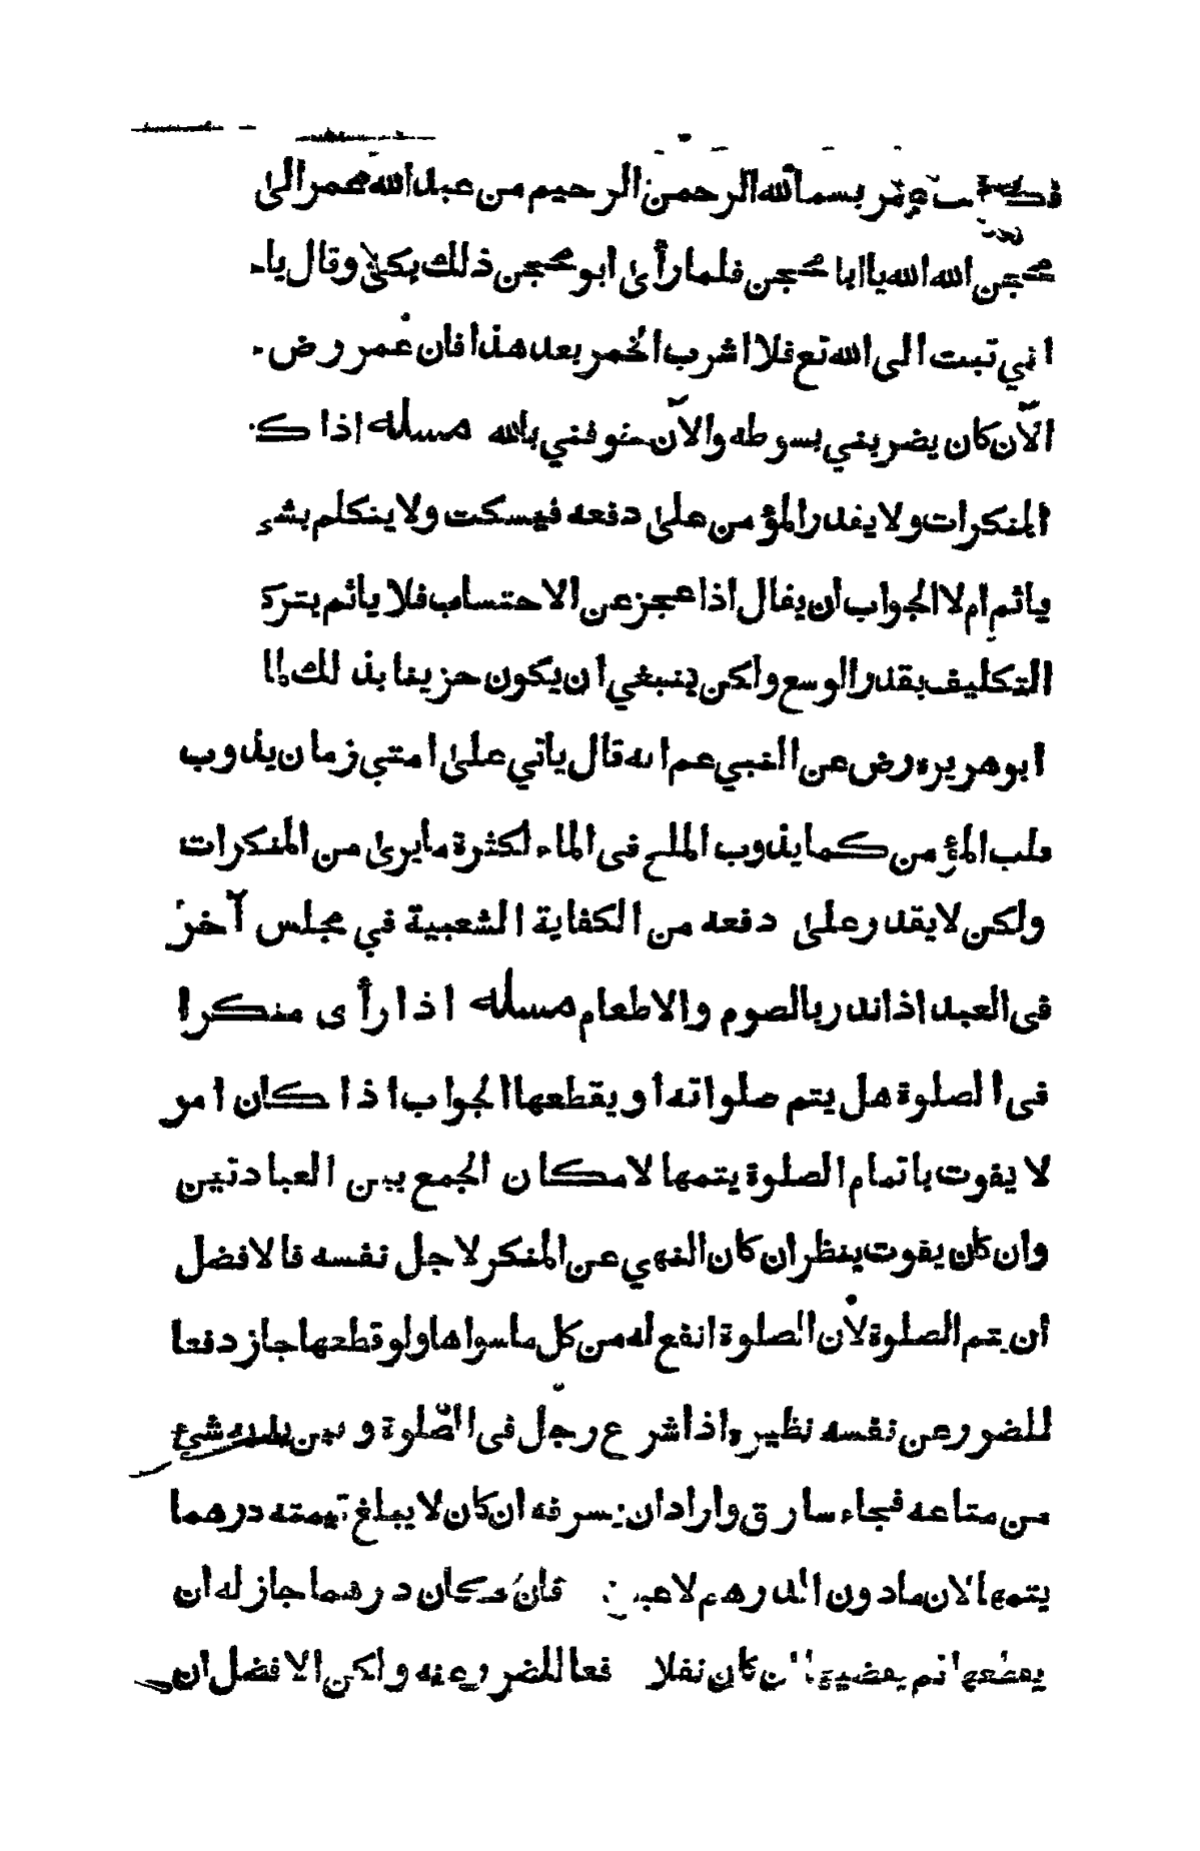 فكتب عمر بسم الله الرحمن الرحيم من عبد الله عمر الى
محجن الله الله يا ابا محجن فلما رأى ابو محجن ذلك بكى وقال يا
اني تبت الى الله تع فلا اشرب الخمر بعد هذا فان عمر رض
الآن كان يضربني بسوطه والآن خوفني بالله مسله اذا
المنكرات ولا يقدر المؤمن على دفعه فيسكت ولا يتكلم بشي
ياثم ام لا الجواب ان يقال اذا عجز عن الاحتساب فلا ياثم بترك
التكليف بقدر الوسع ولكن ينبغي ان يكون حزينا بذلك
ابو هريره رض عن النبي عم انه قال ياتي على امتي زمان يذوب
قلب المؤمن كما يذوب الملح فى الماء لكثرة ما يرى من المنكرات
ولكن لا يقدر على دفعه من الكفاية الشعبية في مجلس آخر
فى العبد اذا نذر بالصوم والاطعام مسله اذا رأى منكرا
فى الصلوة هل يتم صلواته أو يقطعها الجواب اذا كان امر
لا يفوت باتمام الصلوة يتمها لامكان الجمع بين العبادتين
وان كان يفوت ينظر ان كان النهي عن المنكر لاجل نفسه فالافضل
أن يتم الصلوة لأن الصلوة انفع له من كل ما سواها ولو قطعها جاز دفعا
للضرر عن نفسه نظيره اذا شرع رجل فى الصّلوة وبين يديه شئ
من متاعه فجاء سارق واراد ان يسرقه ان كان لا يبلغ قيمته درهما
يتمها لان مادون الدرهم لا فان كان درهما جاز له ان
يقطعها ثم يقضيها ان كان نفلا للضرر عنه ولكن الافضل ان